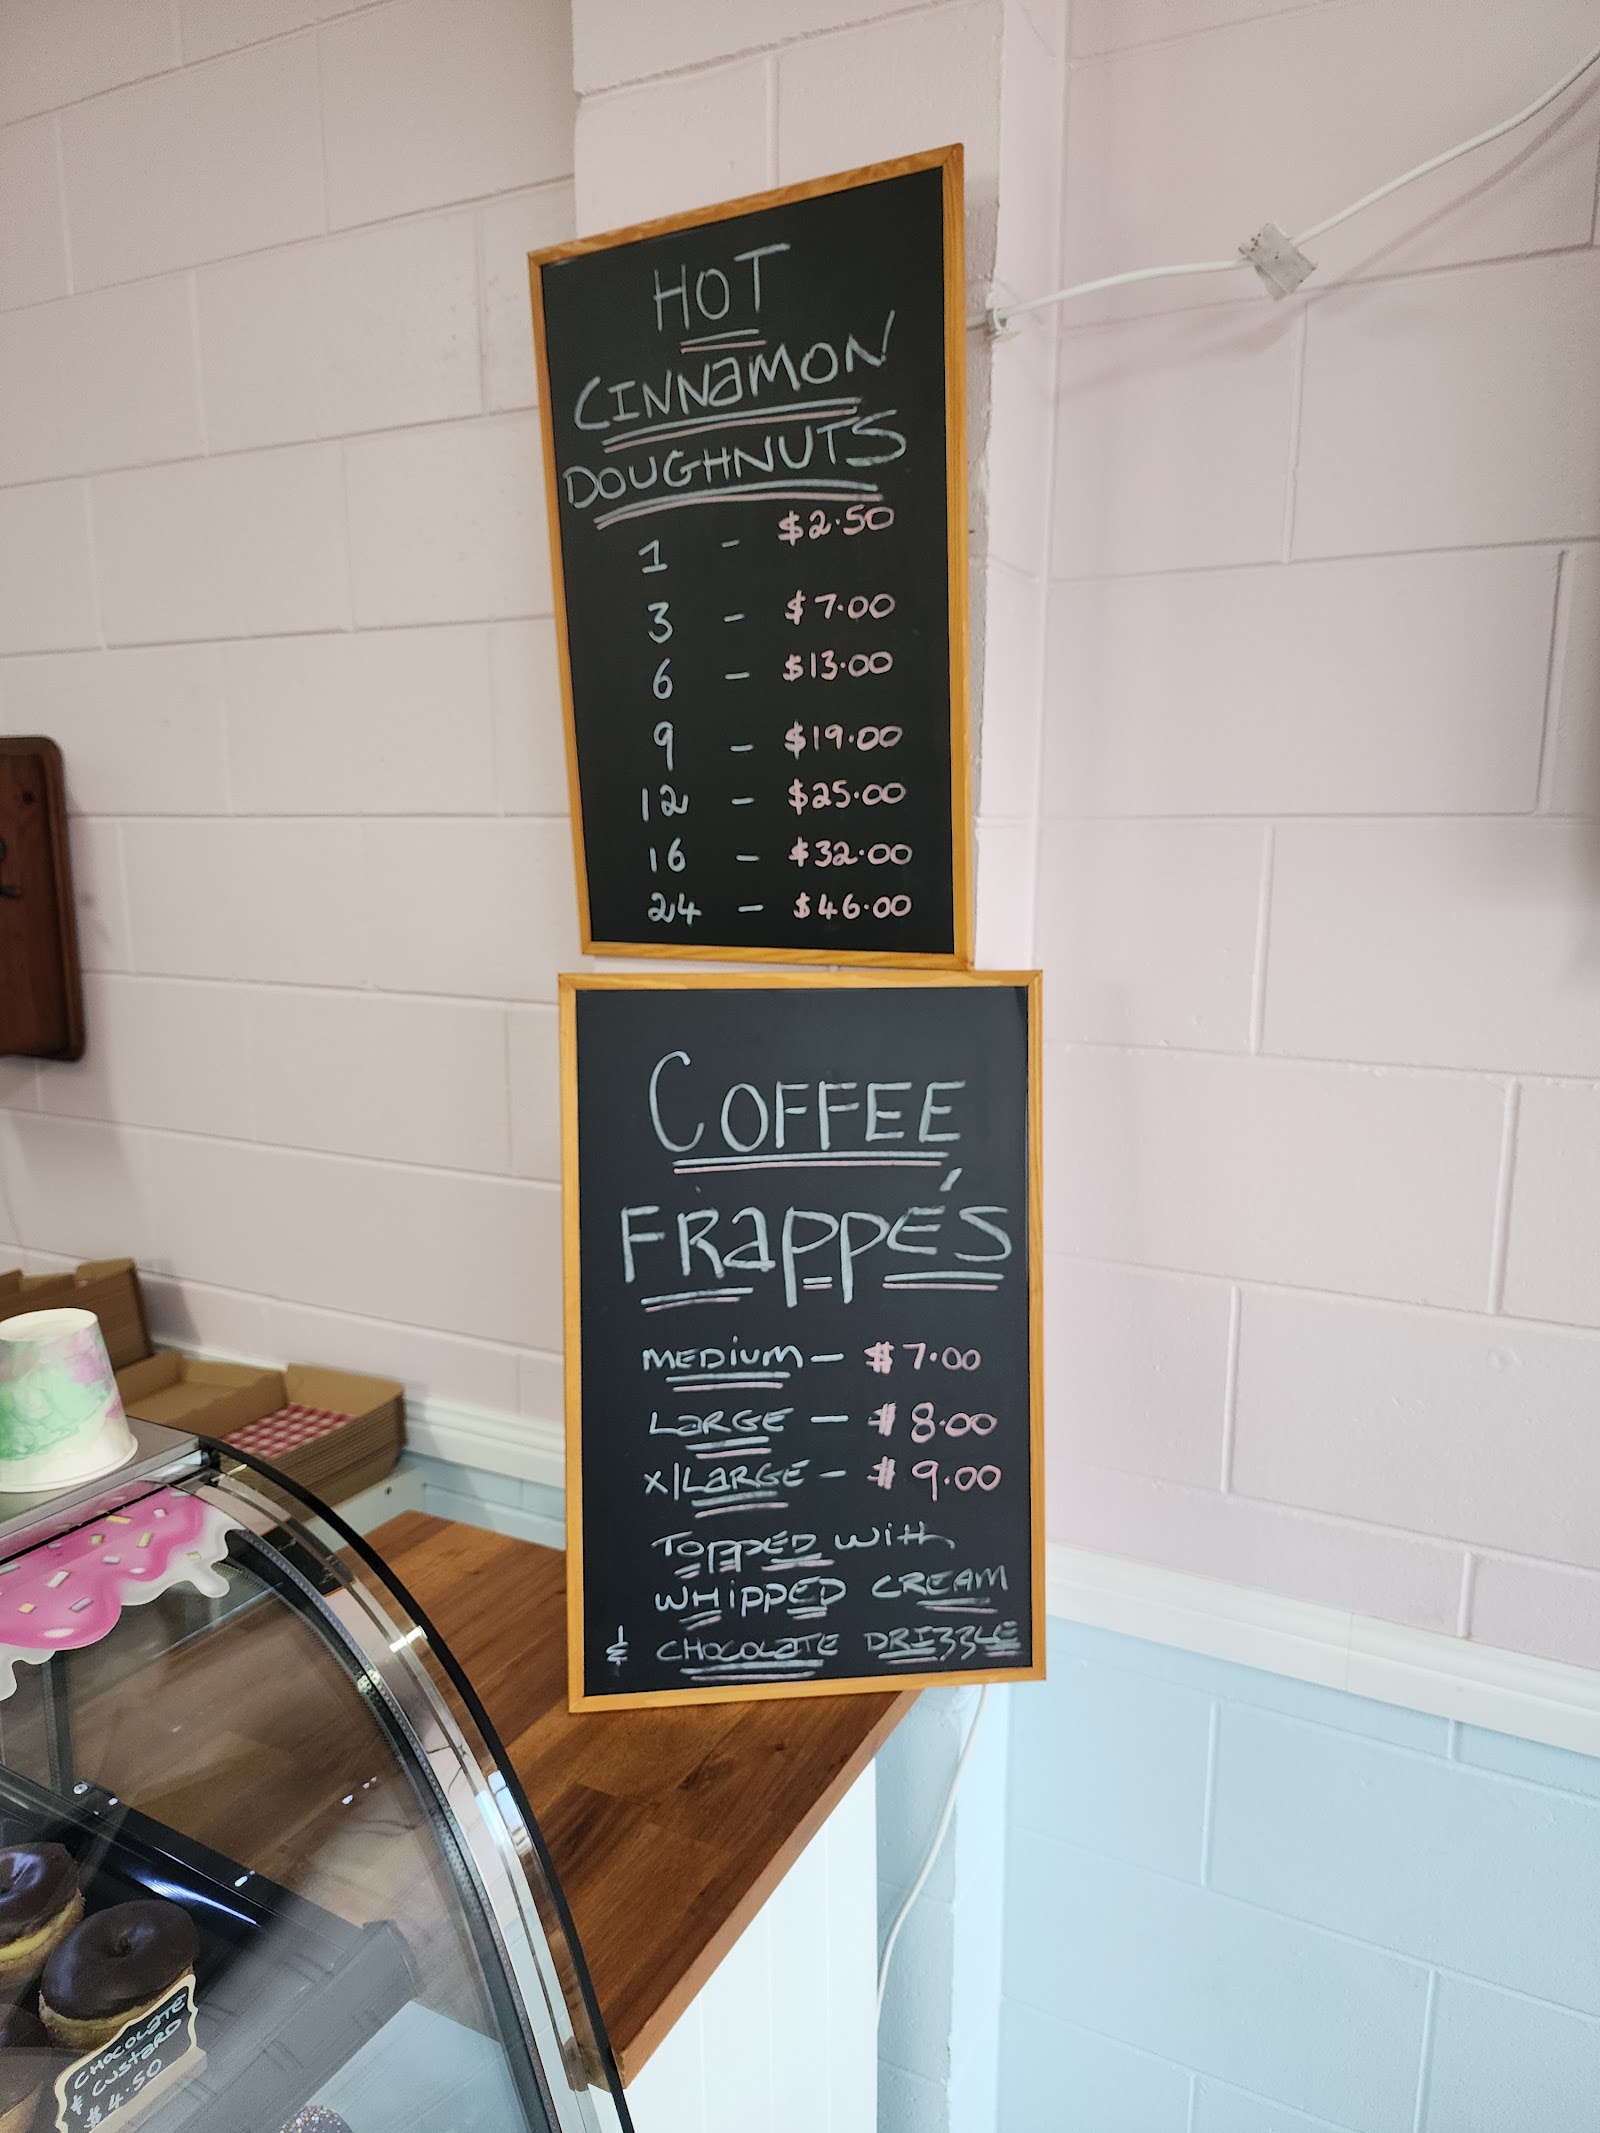 HOT
CINNAMON
DOUGHNUTS
1 - $2.50
3 - $7.00
6 - $13.00
9 - $19.00
12 - $25.00
16 - $32.00
24 - $46.00
COFFEE
FRAPPÉS
MEDIUM - $7.00
LARGE - $8.00
X/LARGE - $9.00
TOPPED WITH
WHIPPED CREAM
& CHOCOLATE DRIZZLE
CHOCOLATE
& CUSTARD
$4.50